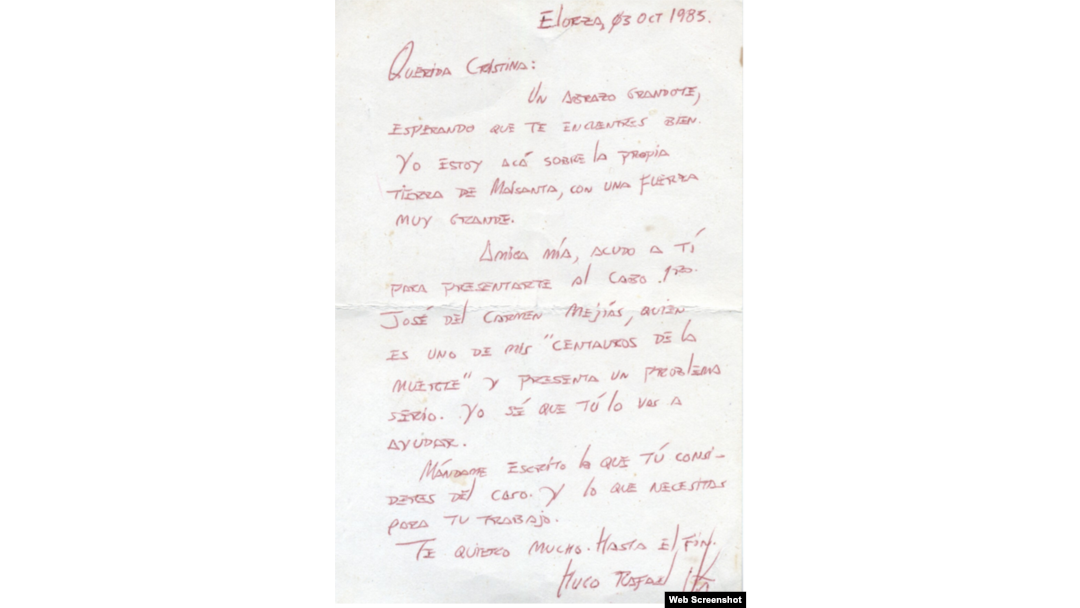 Elorza, 03 OCT 1985.
QUERIDA CRISTINA:
UN ABRAZO GRANDOTE,
ESPERANDO QUE TE ENCUENTRES BIEN.
YO ESTOY ACÁ SOBRE la PROPIA
TIERRA DE MAISANTA, CON UNA FUERZA
MUY GRANDE.
AMIGA MÍA, ACUDO A TÍ
PARA PRESENTARTE Al CABO 1RO.
JOSÉ DEl CARMEN MEJÍAS, QUIEN
ES UNO DE MIS "CENTAUROS DE la
MUERTE" Y PRESENTA UN PROBlEMA
SERIO. YO SÉ QUE TÚ lo VAS A
AYUDAR.
MÁNDAME ESCRITO lo QUE TÚ CONSI-
DERES DEl CASO. Y lo QUE NECESITAS
PARA TU TRABAJO.
TE QUIERO MUCHO. HASTA El FIN.
HUGO RAFAEl
Web Screenshot